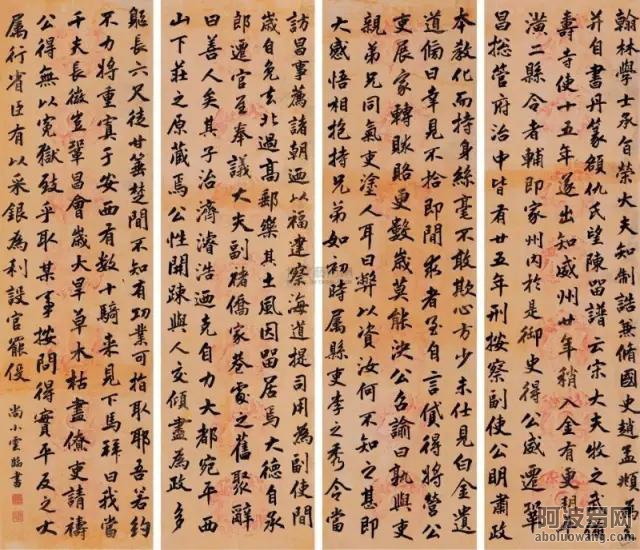 翰林學士承旨榮大夫知制誥兼脩國史趙孟頫
并自書丹篆額仇氏望陳留譜云宋大夫牧之
壽寺使十五年遂出知威州廿年稍入金有更
潢二縣令者輔即家州內於是御史得公威遷鞏
昌總管府治中皆有廿五年刑按察副使公明肅政
本教化而持身絲毫不敢欺心方少未仕見白金遺
道偏曰幸見不拾即間求者至自言貸得將營公
吏展家轉賕賂更數歲莫能決公召諭曰孰與
親弟兄同氣吏塗人耳曰弊以資汝何不知之甚即
大感悟相抱持兄弟如初時属縣吏李之秀令當
訪昌事薦諸朝迺以福建察海道提司用為副使間
歲自免去北過高郵樂其土風因留居焉大德自承
郎遷官至奉議大夫副褚僑家巷處之舊聚辭
曰善人矣其子治濟濬浩迺克自力大都宛平西
山下莊之原藏焉公性開踈與人交傾盡為政多
軀長六尺徒廿篝楚間不知有功業可指取耶吾若約
不力將重寘于安西有數十騎来見下馬拜曰我當
千夫長徵笠鞏昌會歲大旱草木枯盡僚吏請禱
公得無以冤獄致乎取某事按問得實平反之大
属行省臣有以采銀為利設官罷役
尚小雲臨書
阿波羅网
aboluowang.com